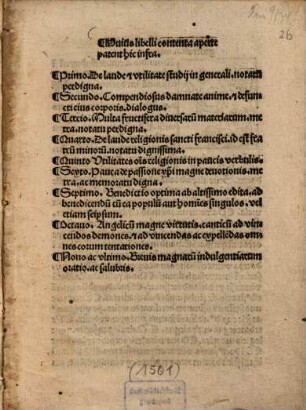 Huius libelli contenta aperte
patent hic infra.
Primo. De laude et vtilitate studij in generali. notatu
perdigna.
Secundo. Compendiosus damnate anime, et defun-
cti eius corporis. dialogus.
Tercio. Multa fructifera diuersarum materiarum. me
tra. notatu perdigna.
Quarto. De laude religionis sancti francisci. id est fra
trum minorum. notatu dignissima.
Quinto Vtilitates ois religionis in paucis verbulis.
Sexto. Pauca de passione xpi magne deuotionis. me
tra. ac memoratu digna.
Septimo. Benedictio optima ab altissimo edita. ad
benedicendum cum ea populum aut homines singulos. vel
etiam seipsum.
Octauo. Angelicum magne virtutis. canticum ad vin
cendos demones. et ad vincendas ac expellendas om
nes eorum tentationes.
Nono ac vltimo. Breuis magnarum indulgentiarum
oratio. ac salubris.
(1501)